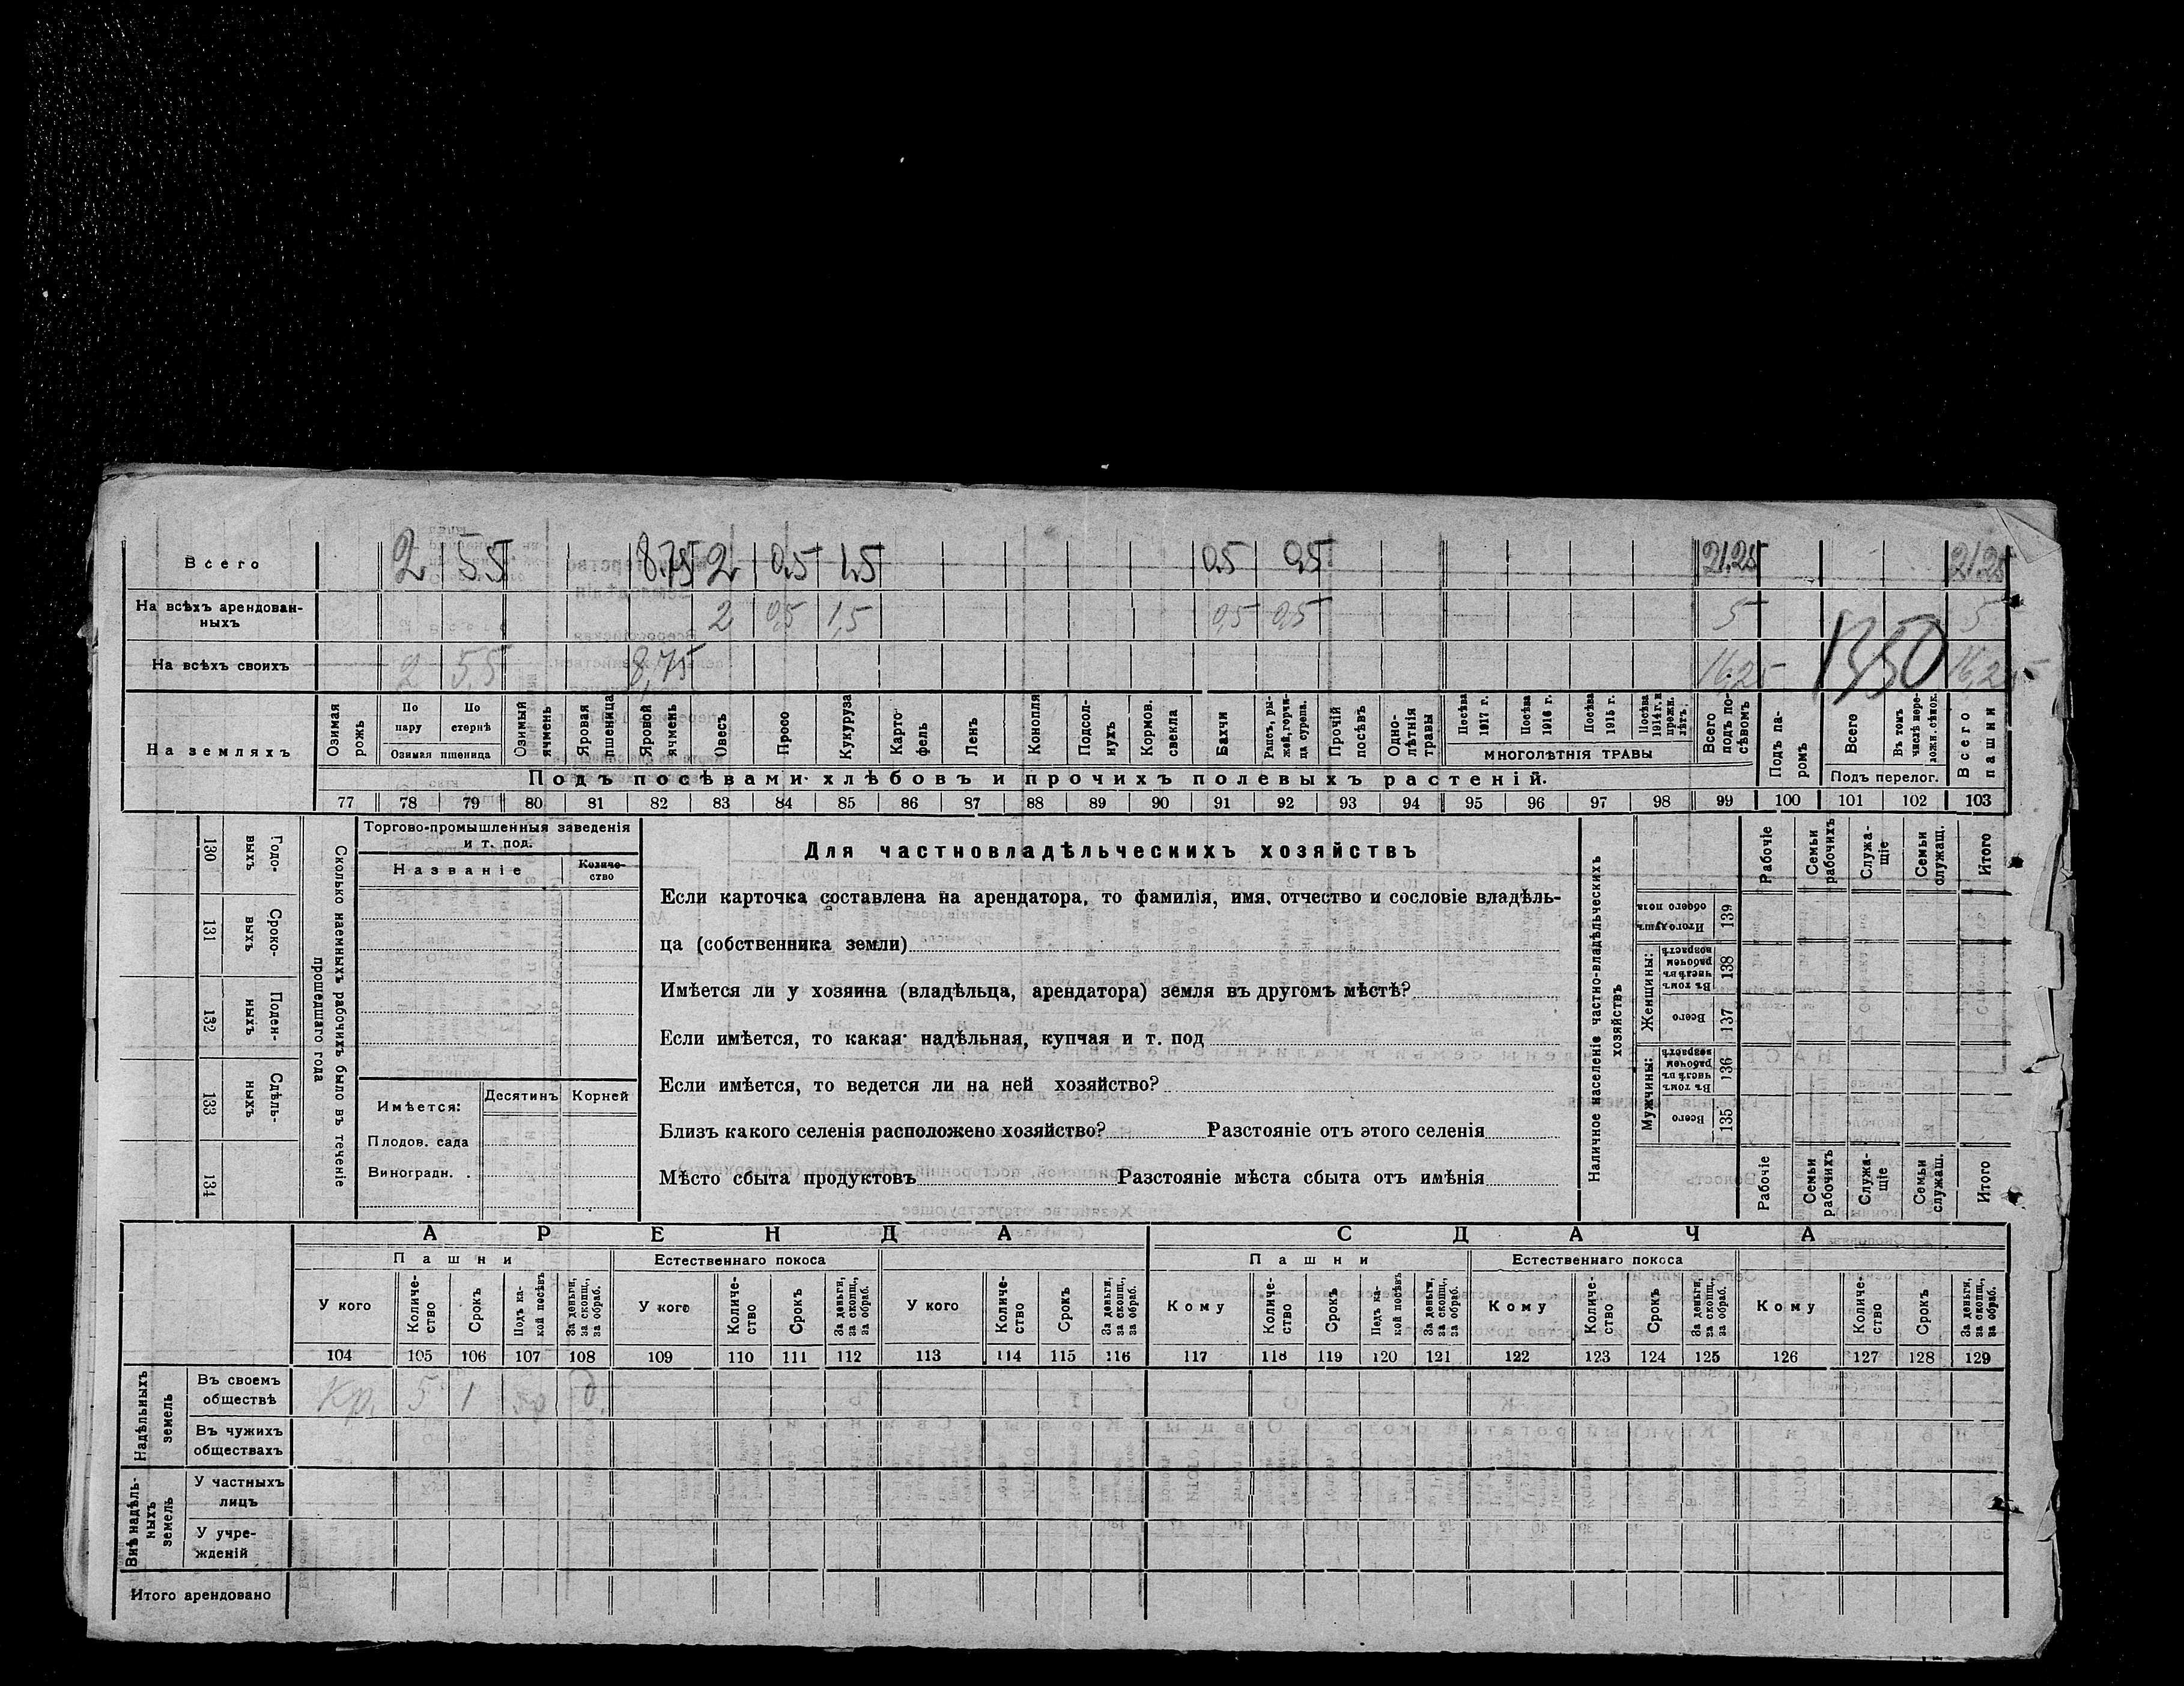 Всего 2 5.5 8.75 2 0.5 1.5 0.5 0.5 21.25 21.25
На всѣхъ арендован-
ныхъ 2 0,5 1,5 0,5 0,5 5 5
На всѣхъ своихъ 2 5,5 8,75 16,25 1350 16,25
На земляхъ
Озимая
рожь
По
пару
По
стернѣ
Озимая пшеница
Озимый
ячмень
Яровая
пшеница
Яровой
ячмень
Овесъ
Просо
Кукуруза
Карто-
фель
Ленъ
Конопля
Подсол-
нухъ
Кормов.
свекла
Бахчи
Рапсъ, ры-
жей, горчи-
ца сурепа.
Прочій
посѣвъ
Одно-
лѣтнія
травы
Посѣва
1917 г.
Посѣва
1916 г.
Посѣва
1915 г.
Посѣва
1914 г. и
прежн.
лѣтъ.
МНОГОЛѢТНІЯ ТРАВЫ
Всего
подъ по-
сѣвомъ
Подъ па-
ромъ
Всего
Въ томъ
числѣ пере-
ложн. сѣнок.
Подъ перелог.
Всего
пашни
Подъ посѣвами хлѣбовъ и прочихъ полевыхъ растеній.
77 78 79 80 81 82 83 84 85 86 87 88 89 90 91 92 93 94 95 96 97 98 99 100 101 102 103
130
Годо-
выхъ
131
Сроко-
выхъ
132
Поден-
ныхъ
133
Сдѣль-
ныхъ
134
Сколько наемныхъ рабочихъ было въ теченіе
прошедшаго года
Торгово-промышленныя заведенія
и т. под.
Названіе
Количе-
ство
Имѣется:
Десятинъ
Корней
Плодов. сада
Виноградн. .
Для частновладѣльческихъ хозяйствъ
Если карточка составлена на арендатора, то фамилія, имя, отчество и сословіе владѣль-
ца (собственника земли)
Имѣется ли у хозяина (владѣльца, арендатора) земля въ другомъ мѣстѣ?
Если имѣется, то какая: надѣльная, купчая и т. под
Если имѣется, то ведется ли на ней хозяйство?
Близъ какого селенія расположено хозяйство? Разстояніе отъ этого селенія
Мѣсто сбыта продуктовъ Разстояніе мѣста сбыта отъ имѣнія
Наличное населеніе частно-владѣльческихъ
хозяйствъ
Рабочіе
Семьи
рабочихъ
Служа-
щіе
Семьи
служащ.
Итого
Итого душъ
обоего пола
139
Женщины:
Въ томъ
числѣ въ
рабочемъ
возрастѣ
138
Всего
137
Мужчины:
Въ томъ
числѣ въ
рабочемъ
возрастѣ
136
Всего
135
Рабочіе
Семьи
рабочихъ
Служа-
щіе
Семьи
служащ.
Итого
АРЕНДА СДАЧА
Пашни Естественнаго покоса Пашни Естественнаго покоса
У кого
Количе-
ство
Срокъ
Подъ ка-
кой посѣвъ
За деньги,
за скопщ.,
за обраб.
У кого
Количе-
ство
Срокъ
За деньги,
за скопщ.,
за обраб.
У кого
Количе-
ство
Срокъ
За деньги,
за скопщ.,
за обраб.
Кому
Количе-
ство
Срокъ
Подъ ка-
кой посѣвъ
За деньги,
за скопщ.,
за обраб.
Кому
Количе-
ство
Срокъ
За деньги,
за скопщ.,
за обраб.
Кому
Количе-
ство
Срокъ
За деньги,
за скопщ.,
за обраб.
104 105 106 107 108 109 110 111 112 113 114 115 116 117 118 119 120 121 122 123 124 125 126 127 128 129
Надѣльныхъ
земель
Въ своемъ
обществѣ
Кр. 5 1 яр д.
Въ чужихъ
обществахъ
Внѣ надѣль-
ныхъ
земель
У частныхъ
лицъ
У учре-
жденій
Итого арендовано